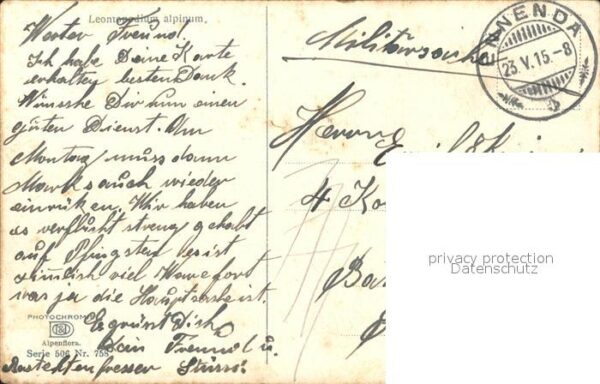 Leontopodium alpinum.
Werter Freund.
Ich habe Deine Karte
erhalten besten Dank.
Wünsche Dir nun einen
guten Dienst. Am
Montag muss dann
Marks auch wieder
einrüken. Wir haben
es verflucht streng gehabt
auf Pfingsten es ist
ziemlich viel
was ja die Hauptsache ist.
Es grüsst Dich
Dein Freund u.
Stüssi
PHOTOCHROMIE
Alpenflora.
Serie 506 Nr. 758
Militärsache
ENNENDA
23.V.15.-8
Herrn
4 Ko
privacy protection
Datenschutz